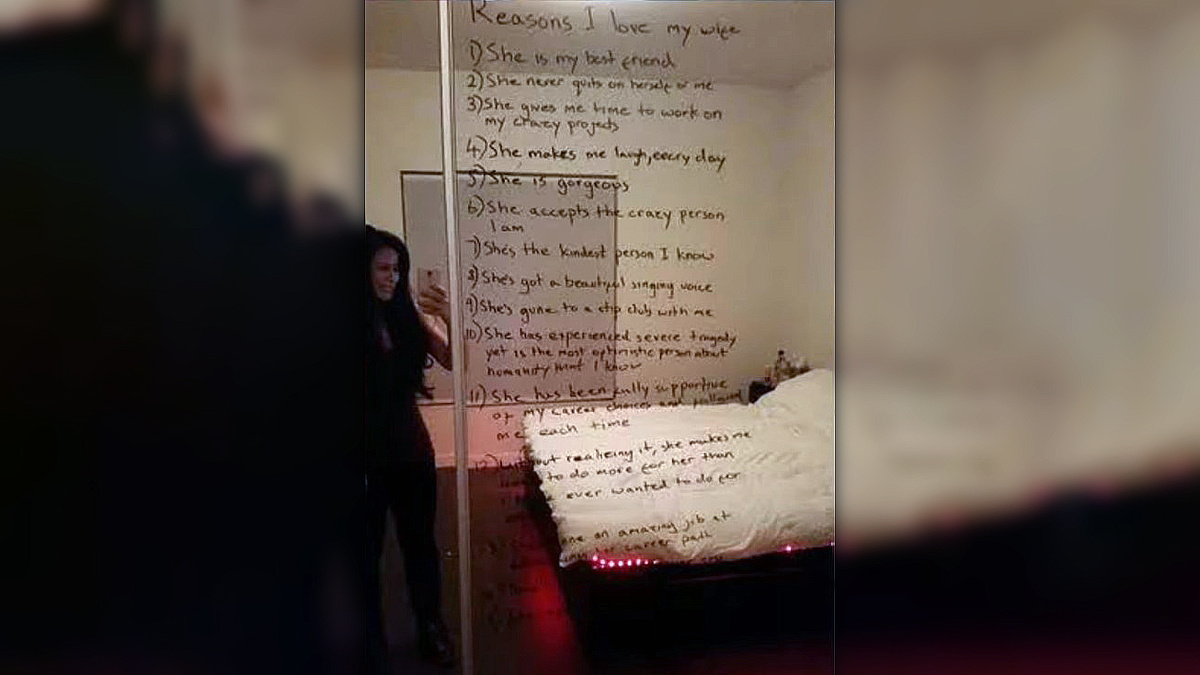 Reasons I love my wife
1) She is my best friend
2) She never quits on herself or me
3) She gives me time to work on
my crazy projects
4) She makes me laugh, every day
5) She is gorgeous
6) She accepts the crazy person
I am
7) She's the kindest person I know
8) She's got a beautiful singing voice
9) She's gone to a strip club with me
10) She has experienced severe tragedy
yet is the most optimistic person about
humanity that I know
11) She has been fully supportive
of my career choices and followed
me each time
12) Without realizing it, she makes me
to do more for her than
ever wanted to do for
an amazing job at
career path